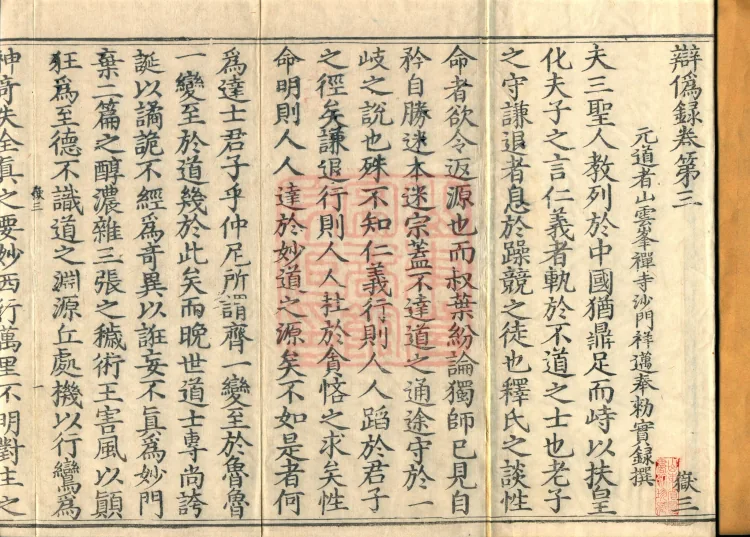 辯僞錄卷第三 嶽三
元道者山雲峯禪寺沙門祥邁奉勅實錄撰
夫三聖人敎列於中國猶鼎足而峙以扶皇
化夫子之言仁義者軌於不道之士也老子
之守謙退者息於躁競之徒也釋氏之談性
命者欲令返源也而叔葉紛論獨師已見自
矜自勝迷本迷宗蓋不達道之通途守於一
岐之說也殊不知仁義行則人人蹈於君子
之徑矣謙退行則人人拄於貪悋之求矣性
命明則人人達於妙道之源矣不如是者何
爲達士君子乎仲尼所謂齊一變至於魯魯
一變至於道幾於此矣而晩世道士專尙誇
誕以譎詭不經爲奇異以誑妄不眞爲妙門
棄二篇之醇濃雜三張之穢術王害風以顚
狂爲至德不識道之淵源丘處機以行鸞爲
嶽三 一
神奇失全眞之要妙西行萬里不明對主之